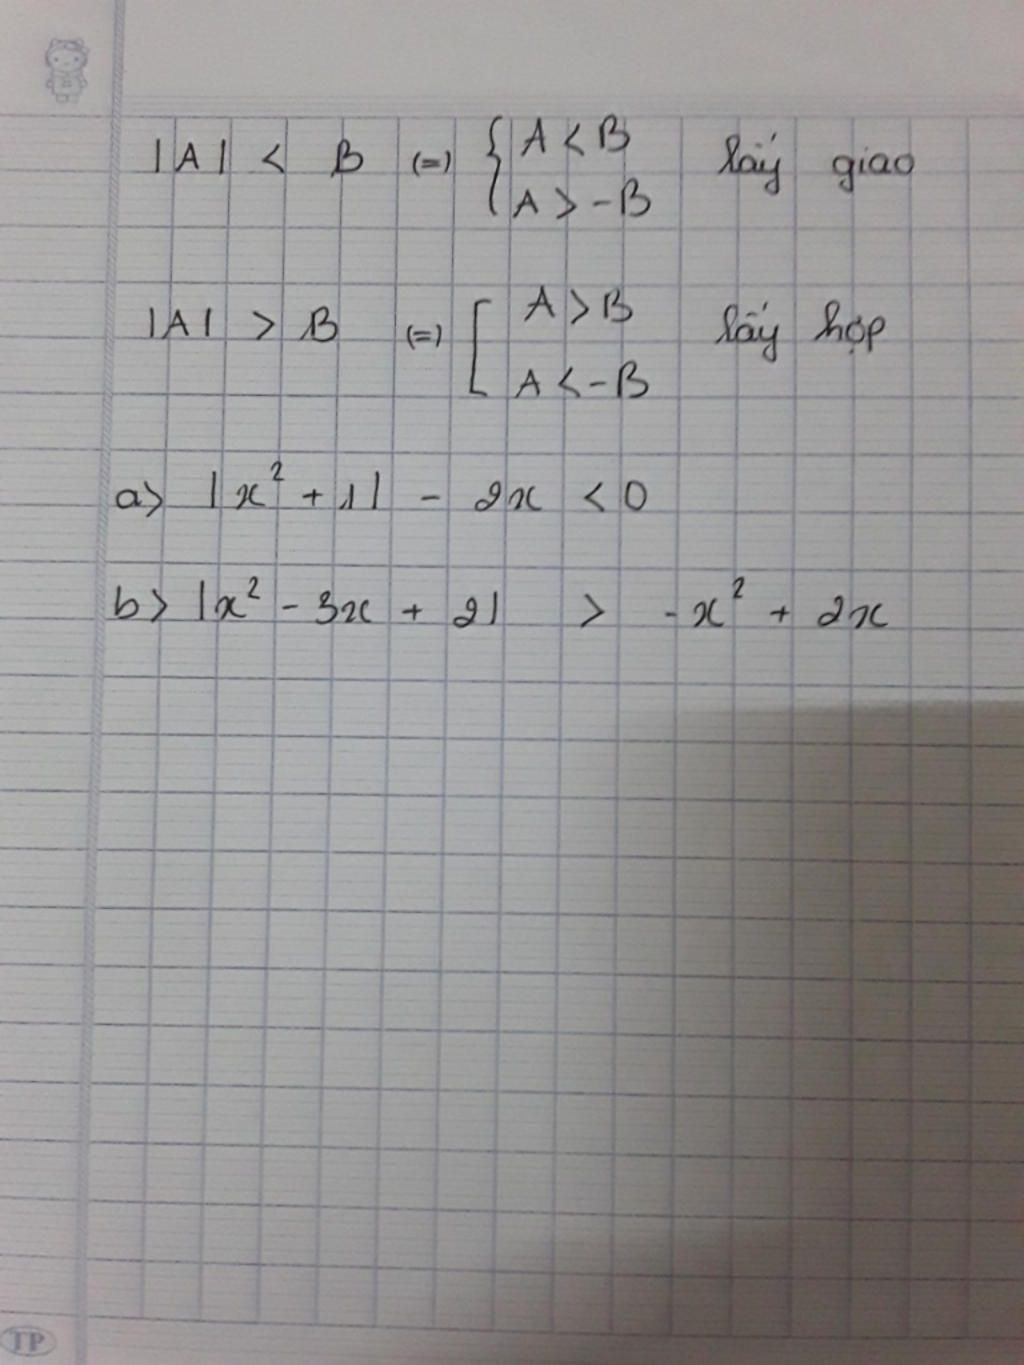 |A| < B (=) { A < B lấy giao
A > -B
|A| > B (=) [ A > B lấy hợp
A < -B
a> |x² + 1| - 2x < 0
b> |x² - 3x + 2| > -x² + 2x
TP